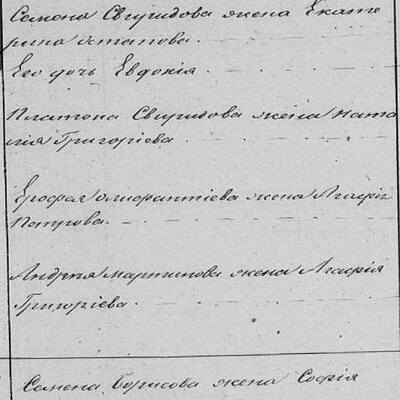 Семена Свиридова жена Екате
рина Остапова.
Его дочь Евдокія.
Платона Свиридова жена Ната
лія Григоріева
Ерофея Олифантіева жена Агафія
Петрова.
Андрея Мартинова жена Агафія
Григоріева.
Семена Борисова жена Софія